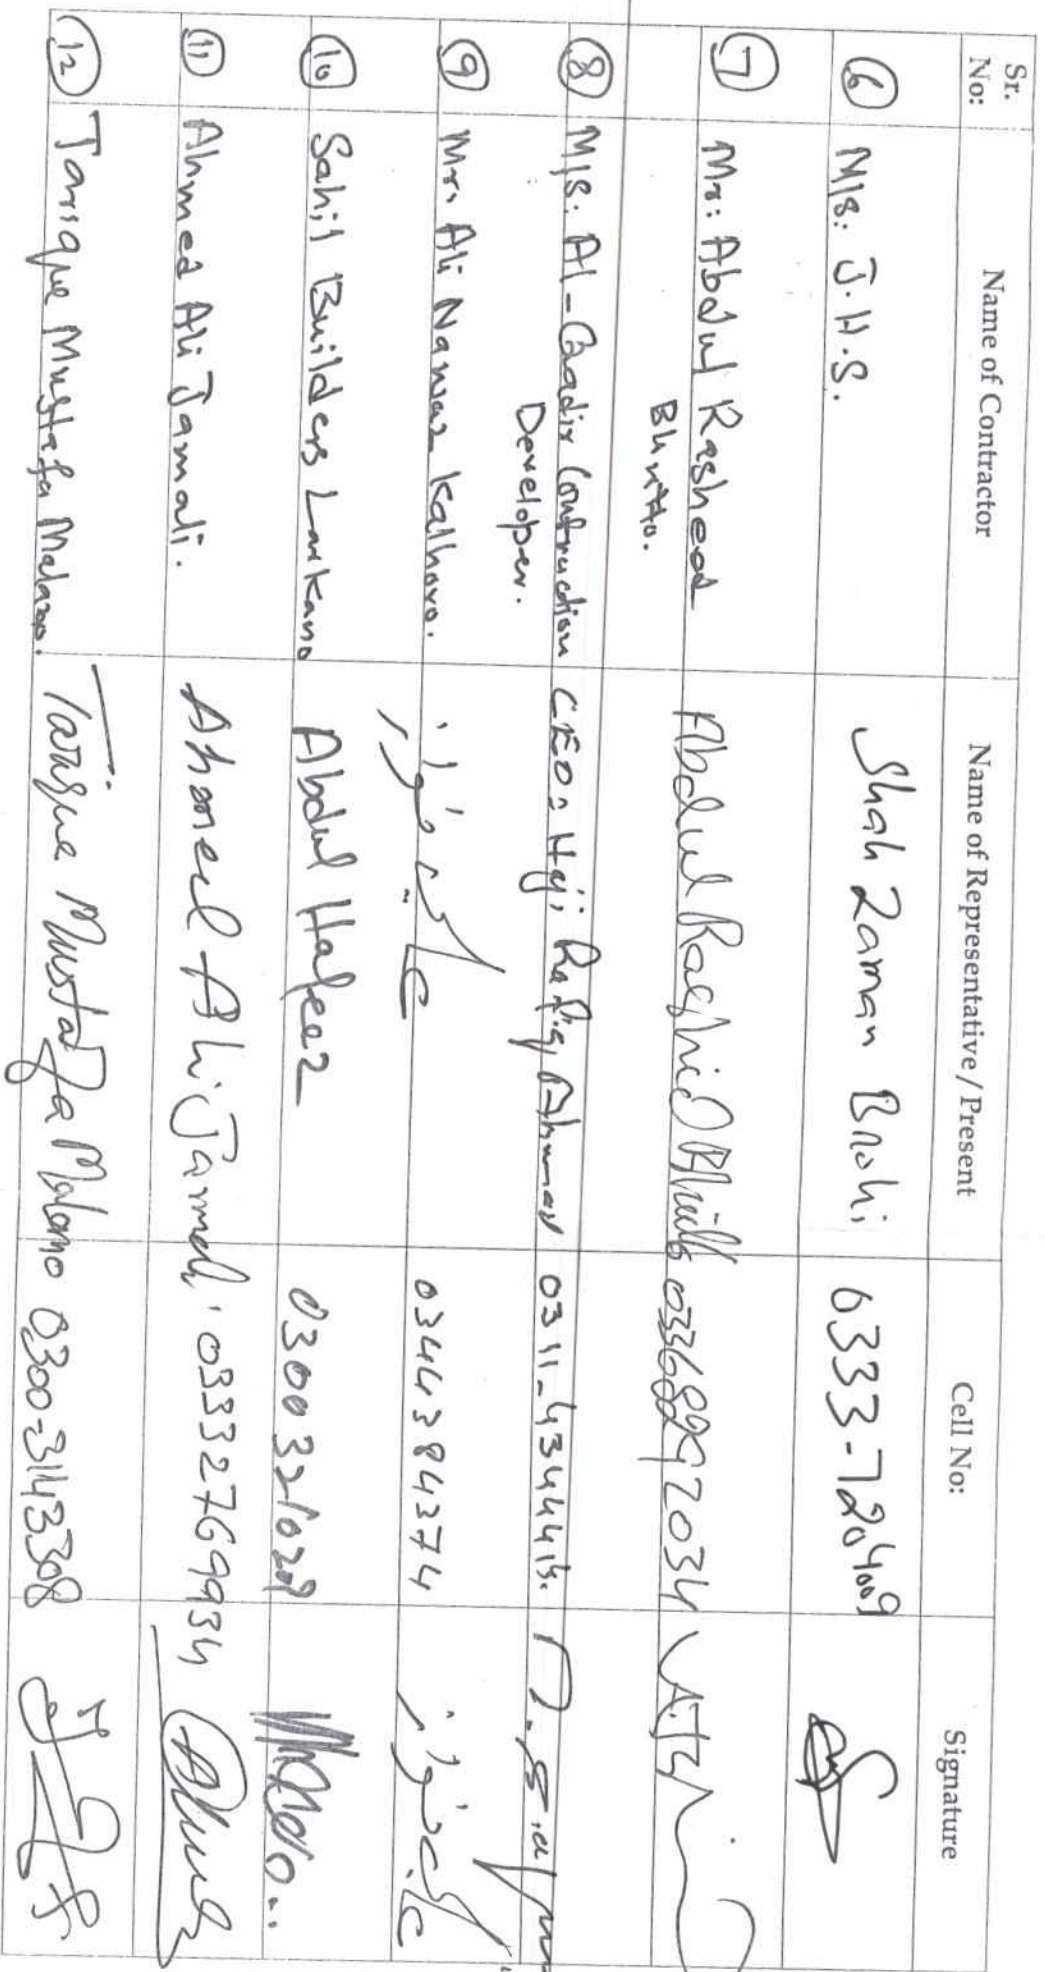 Sr. No: Name of Contractor Name of Representative / Present Cell No: Signature
6 M/s: J.H.S. Shah Zaman Brohi 0333-7204009
7 Mr: Abdul Rasheed Bhutto. Abdul Rashid Bhutto
8 M/s: Al-Qadir Contruction Developer. CEO: Haji Rafiq Ahmad 0311-4344413.
9 Mr. Ali Nawaz Kalhoro. علي نواز 0344384374
10 Sahil Builders Larkano Abdul Hafeez 03003321028
11 Ahmed Ali Jamali. Ahmed Ali Jamali 03332769934
12 Tarique Mustafa Malano. Tarique Mustafa Malano 0300-3143308